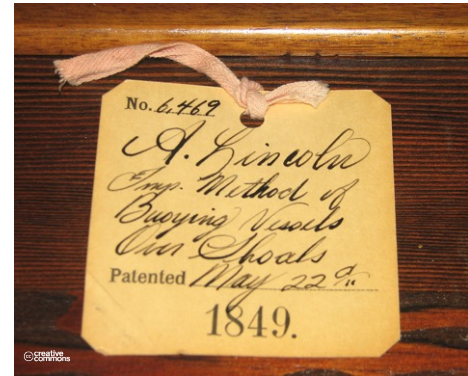 No. 6,469
A. Lincoln
Imp. Method of
Buoying Vessels
Over Shoals
Patented May 22d
1849.
creative
commons